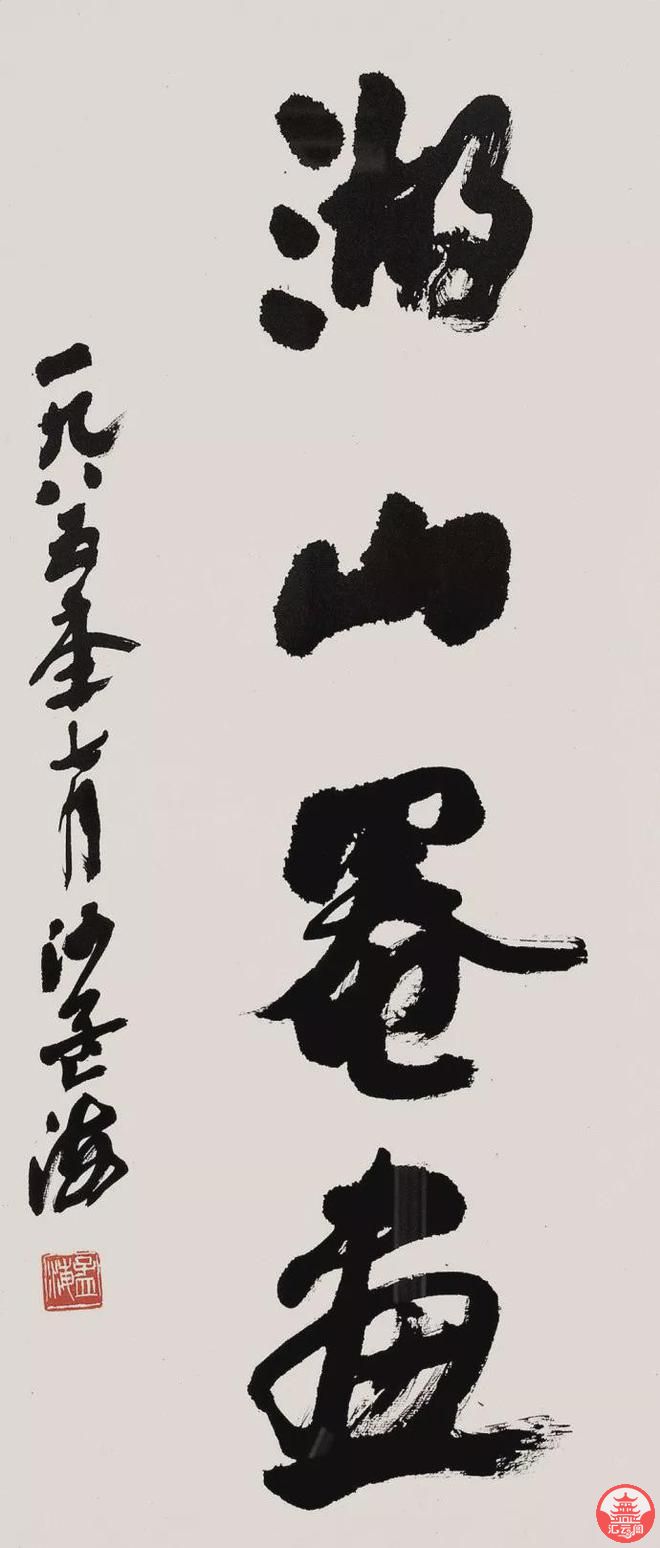 湖山罨畫
一九八五年七月沙孟海
孟海
汇云阁